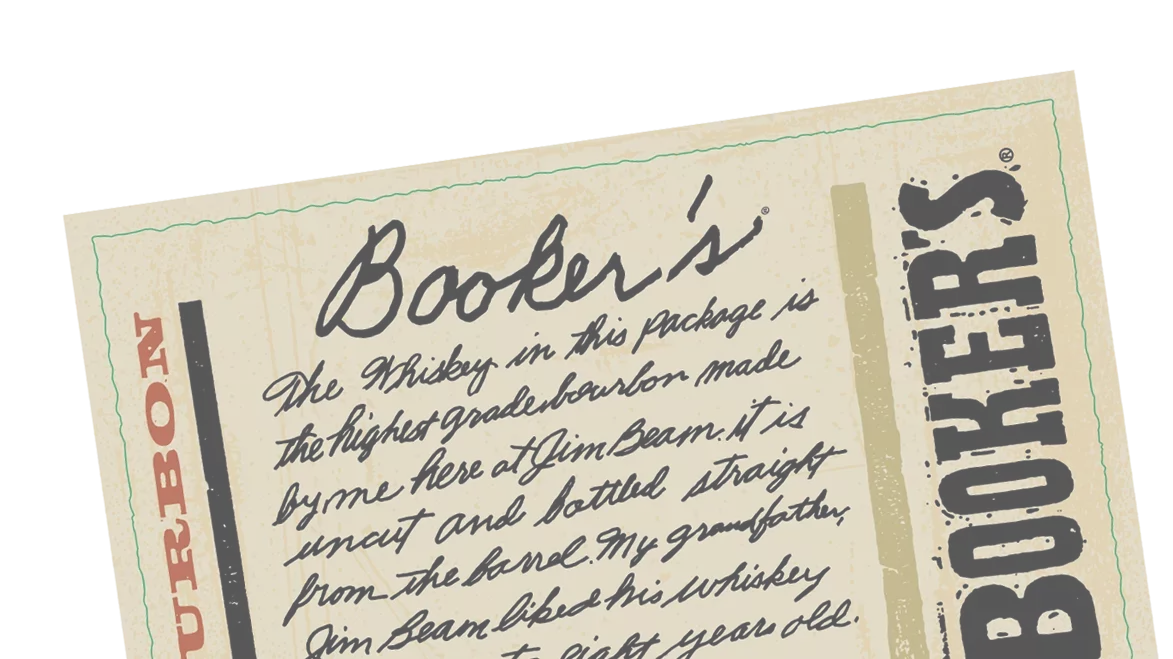 Booker's®
The Whiskey in this package is
the highest grade bourbon made
by me here at Jim Beam. it is
uncut and bottled straight
from the barrel. My grandfather,
Jim Beam liked his whiskey
to eight years old.
URBON
BOOKER'S®